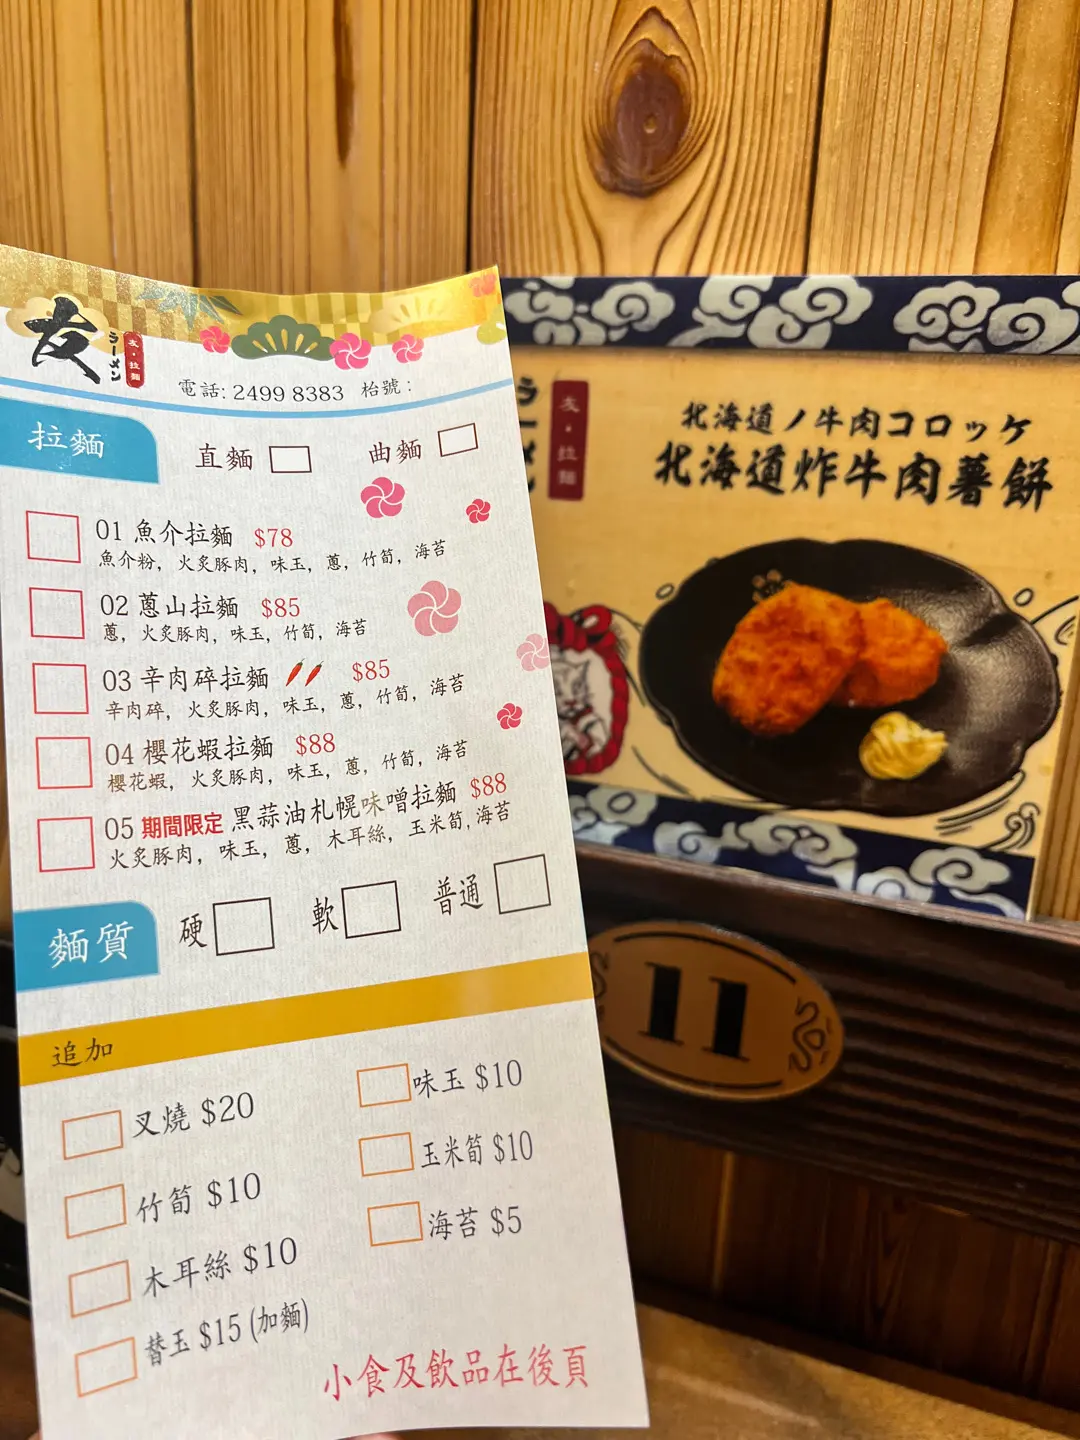 友
ラーメン
友・拉麵
電話: 2499 8383 枱號:
拉麵
直麵 曲麵
01 魚介拉麵 $78
魚介粉, 火炙豚肉, 味玉, 蔥, 竹筍, 海苔
02 蔥山拉麵 $85
蔥, 火炙豚肉, 味玉, 竹筍, 海苔
03 辛肉碎拉麵 $85
辛肉碎, 火炙豚肉, 味玉, 蔥, 竹筍, 海苔
04 櫻花蝦拉麵 $88
櫻花蝦, 火炙豚肉, 味玉, 蔥, 竹筍, 海苔
05 期間限定 黑蒜油札幌味噌拉麵 $88
火炙豚肉, 味玉, 蔥, 木耳絲, 玉米筍, 海苔
麵質
硬 軟 普通
追加
叉燒 $20
竹筍 $10
木耳絲 $10
替玉 $15 (加麵)
味玉 $10
玉米筍 $10
海苔 $5
小食及飲品在後頁
ラーメン
友・拉麵
北海道ノ牛肉コロッケ
北海道炸牛肉薯餅
11